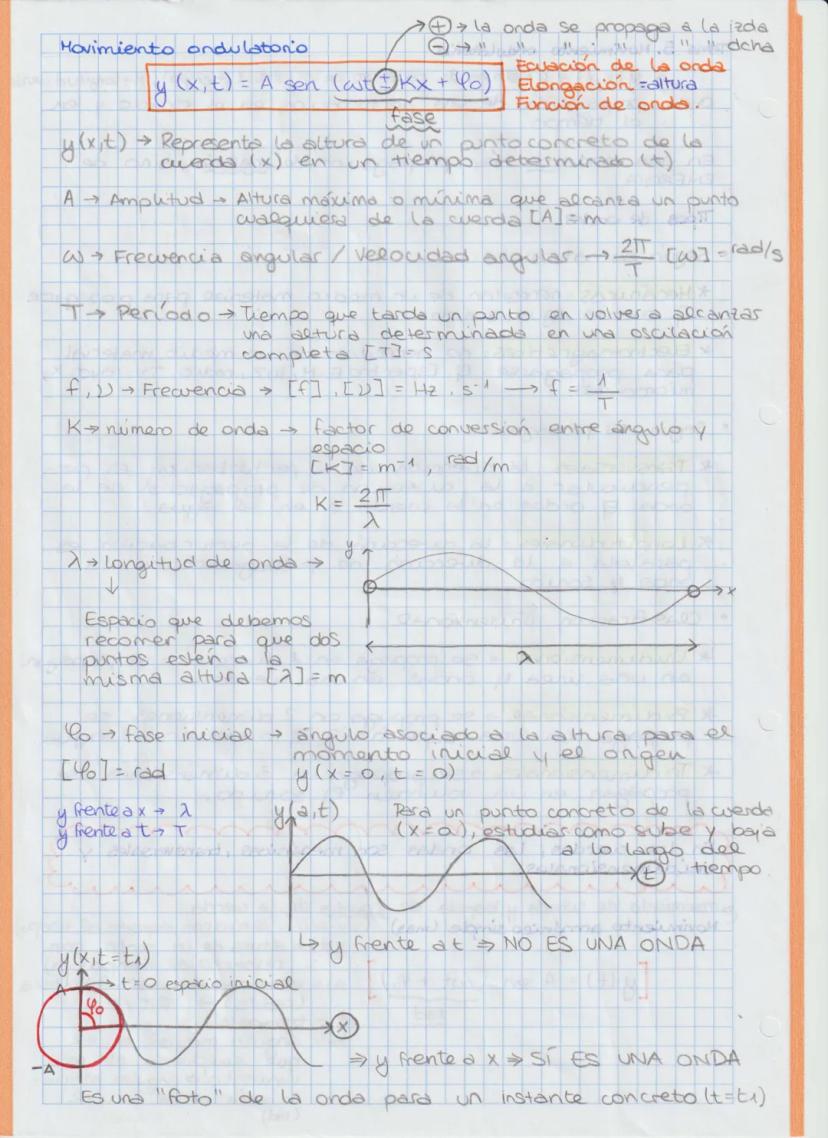 ⊕ → la onda se propaga a la izda
⊖ → " " " ; " " " dcha
Movimiento ondulatorio
y(x,t) = A sen (ωt ± Kx + φ₀)
fase
Ecuación de la onda
Elongación = altura
Función de onda.
y(x,t) → Representa la altura de un punto concreto de la
cuerda (x) en un tiempo determinado (t)
A → Amplitud → Altura máxima o mínima que alcanza un punto
cualquiera de la cuerda [A] = m
ω → Frecuencia angular / velocidad angular → 2π/T [ω] = rad/s
T → Período → Tiempo que tarda un punto en volver a alcanzar
una altura determinada en una oscilación
completa [T] = s
f, ν → Frecuencia → [f], [ν] = Hz, s⁻¹ → f = 1/T
K → número de onda → factor de conversión entre ángulo y
espacio
[K] = m⁻¹, rad/m
K = 2π/λ
λ → longitud de onda →
↓
Espacio que debemos
recorrer para que dos
puntos estén a la
misma altura [λ] = m
y
x
λ
φ₀ → fase inicial → ángulo asociado a la altura para el
momento inicial y el origen
[φ₀] = rad y(x=0, t=0)
y frente a x → λ
y frente a t → T
y(a,t)
t
Para un punto concreto de la cuerda
(x=a), estudiar como sube y baja
a lo largo del
tiempo
↳ y frente a t ⇒ NO ES UNA ONDA
y(x,t=t1)
A
→ t=0 espacio inicial
φ₀
x
-A
⇒ y frente a x ⇒ SÍ ES UNA ONDA
Es una "foto" de la onda para un instante concreto (t=t1)